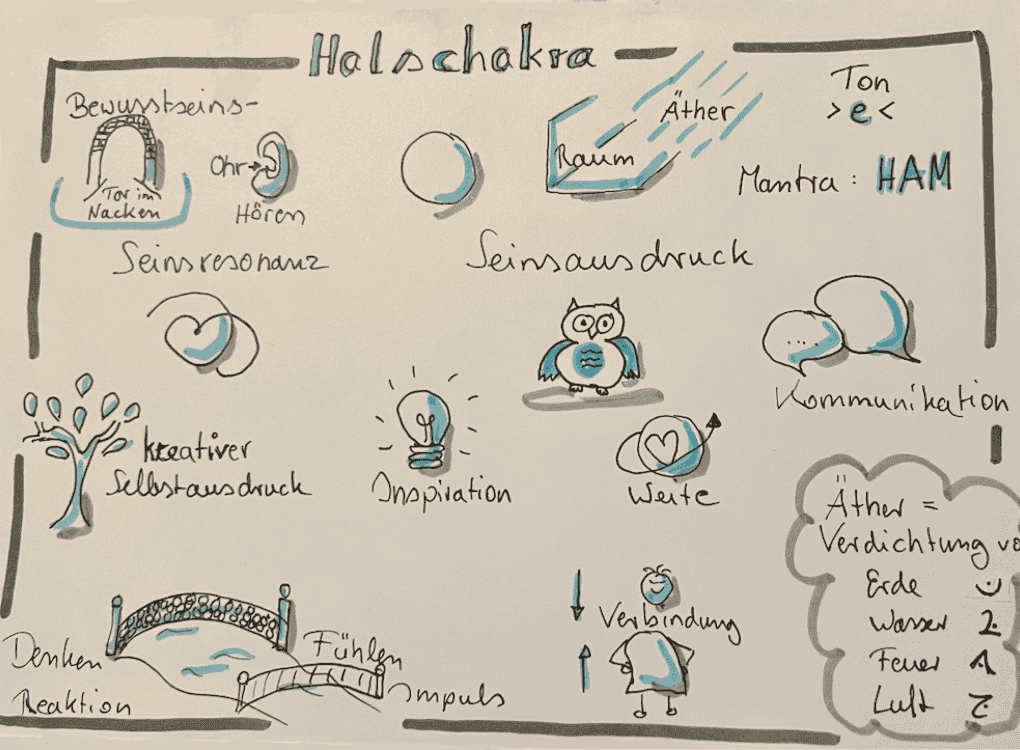 Halschakra
Bewusstseins-
Tor im
Nacken
Ohr
Hören
Raum
Äther
Ton
> e <
Mantra : HAM
Seinsresonanz
Seinsausdruck
Kommunikation
kreativer
Selbstausdruck
Inspiration
Weite
Äther =
Verdichtung vo
Erde
Wasser
Feuer
Luft
Verbindung
Denken
Fühlen
Reaktion
Impuls